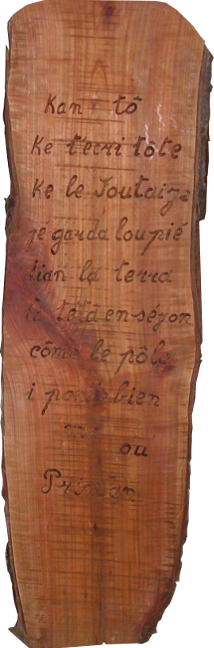 Kan tô
Ke t'ecri tote
Ke le Joutaize
jé garda lou pié
dian la terra
la tétâ en ségon
côme le pôle
i pode bien
ou
Printan